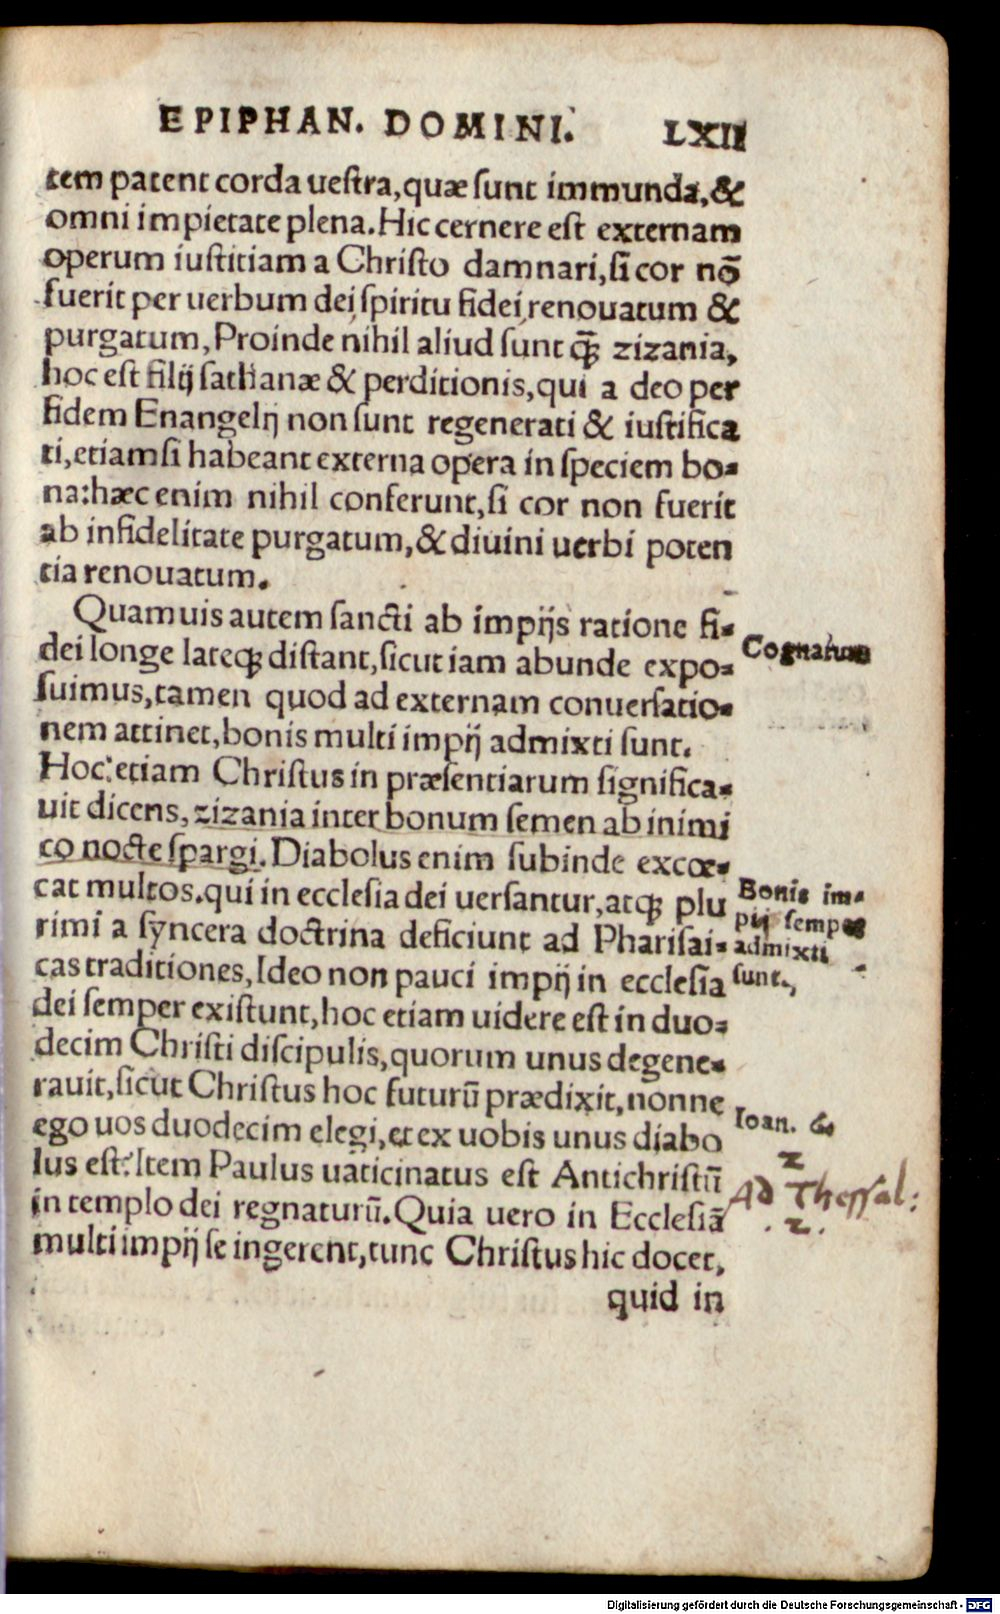 EPIPHAN. DOMINI. LXII
tem patent corda uestra, quæ sunt immunda, &
omni impietate plena. Hic cernere est externam
operum iustitiam a Christo damnari, si cor nō
fuerit per uerbum dei, spiritu fidei renouatum &
purgatum, Proinde nihil aliud sunt q̄ꝫ zizania,
hoc est filij sathanæ & perditionis, qui a deo per
fidem Enangelij non sunt regenerati & iustifica
ti, etiamsi habeant externa opera in speciem bo-
na: hæc enim nihil conferunt, si cor non fuerit
ab infidelitate purgatum, & diuini uerbi poten
tia renouatum.
Quamuis autem sancti ab impijs ratione fi-
dei longe lateqꝫ distant, sicut iam abunde expo-
suimus, tamen quod ad externam conuersatio-
nem attinet, bonis multi impij admixti sunt.
Hoc etiam Christus in præsentiarum significa-
uit dicens, zizania inter bonum semen ab inimi
co nocte spargi. Diabolus enim subinde excœ-
cat multos. qui in ecclesia dei uersantur, atqꝫ plu
rimi a syncera doctrina deficiunt ad Pharisai-
cas traditiones, Ideo non pauci impij in ecclesia
dei semper existunt, hoc etiam uidere est in duo-
decim Christi discipulis, quorum unus degene-
rauit, sicut Christus hoc futurū prædixit, nonne
ego uos duodecim elegi, et ex uobis unus diabo
lus est? Item Paulus uaticinatus est Antichristū
in templo dei regnaturū. Quia uero in Ecclesiā
multi impij se ingerent, tunc Christus hic docet,
quid in
Bonis im-
pij semper
admixti
sunt.
Ioan. 6
2
Ad Thessal:
. 2.